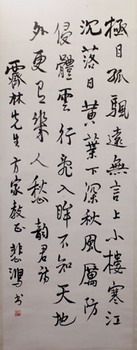 極目孤颿遠無言上小樓寒江
沉落日黃葉下深秋風厲防
侵體雲行亂入眸不知天地
外更有幾人愁 韻君詩
霽林先生方家教正 悲鴻書